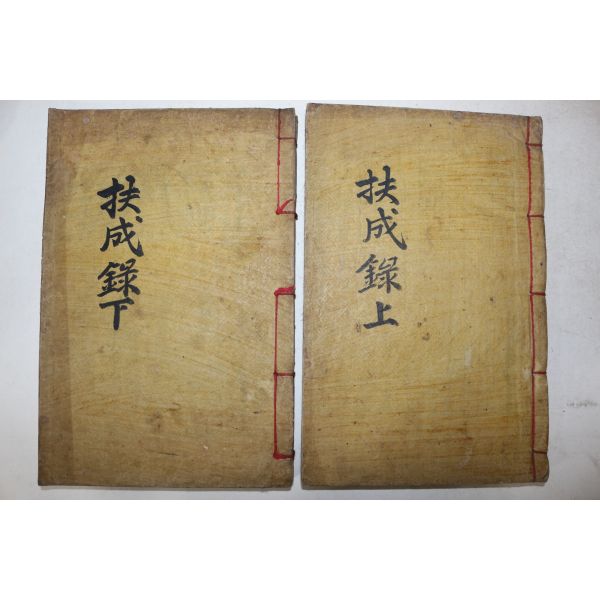 扶成錄上
扶成錄下